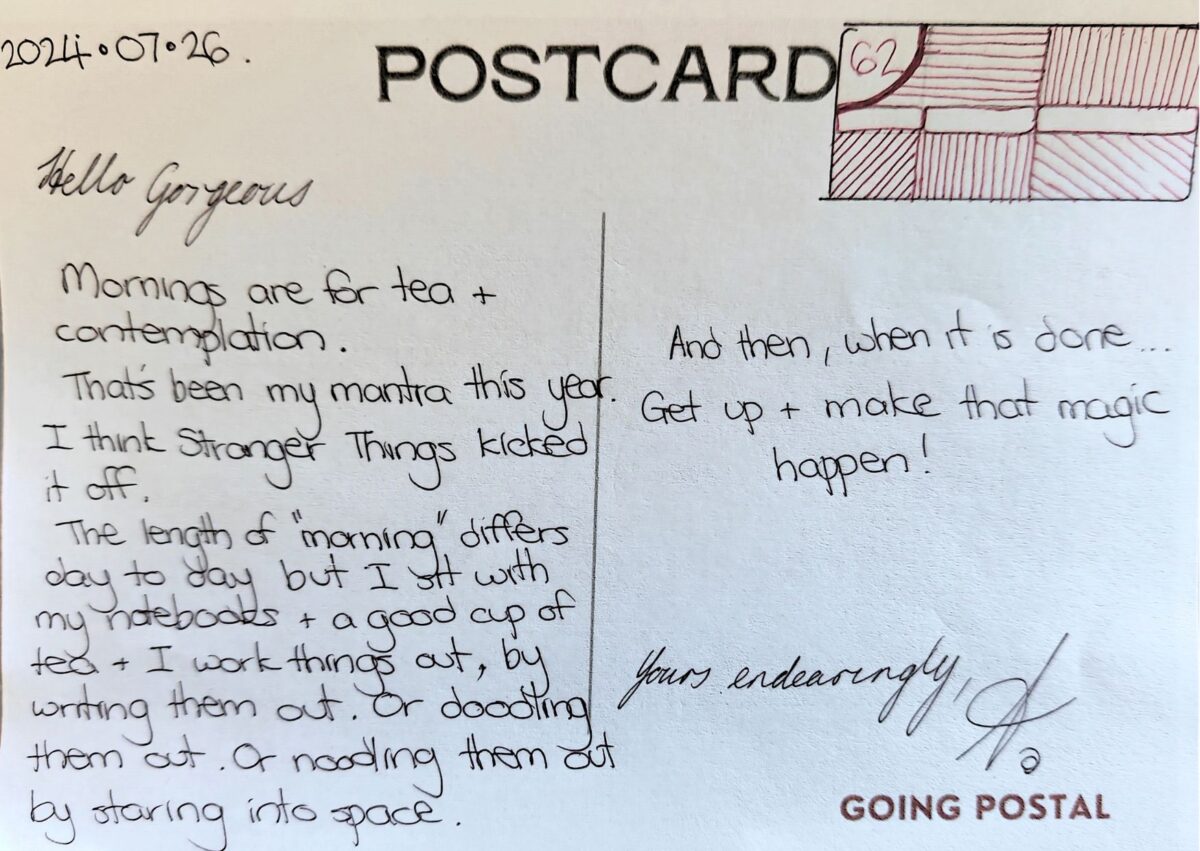 2024.07.26.
POSTCARD
62
Hello Gorgeous
Mornings are for tea +
contemplation.
That's been my mantra this year.
I think Stranger Things kicked
it off.
The length of "morning" differs
day to day but I sit with
my notebooks + a good cup of
tea + I work things out, by
writing them out. Or doodling
them out. Or noodling them out
by staring into space.
And then, when it is done...
Get up + make that magic
happen!
Yours endearingly,
GOING POSTAL